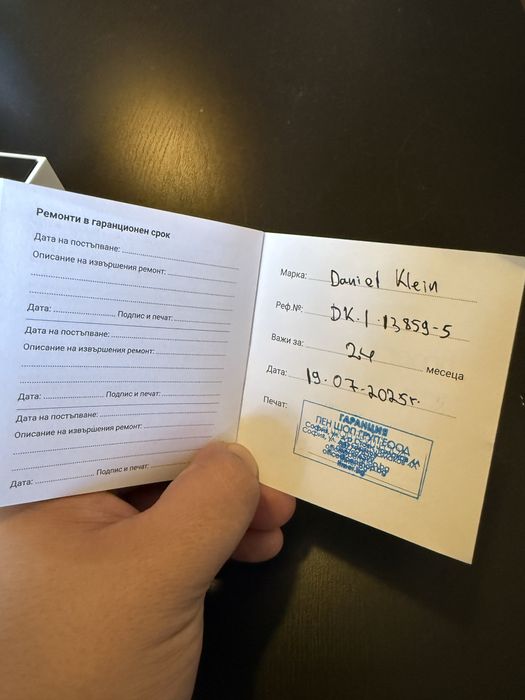 Ремонти в гаранционен срок
Дата на постъпване:
Описание на извършения ремонт:
Дата: Подпис и печат:
Дата на постъпване:
Описание на извършения ремонт:
Дата: Подпис и печат:
Дата на постъпване:
Описание на извършения ремонт:
Дата: Подпис и печат:
Марка: Daniel Klein
Реф.№: DK.1.13859-5
Важи за: 24 месеца
Дата: 19.07-2025г.
Печат:
ГАРАНЦИЯ
ПЕН ШОП ГРУП ЕООД